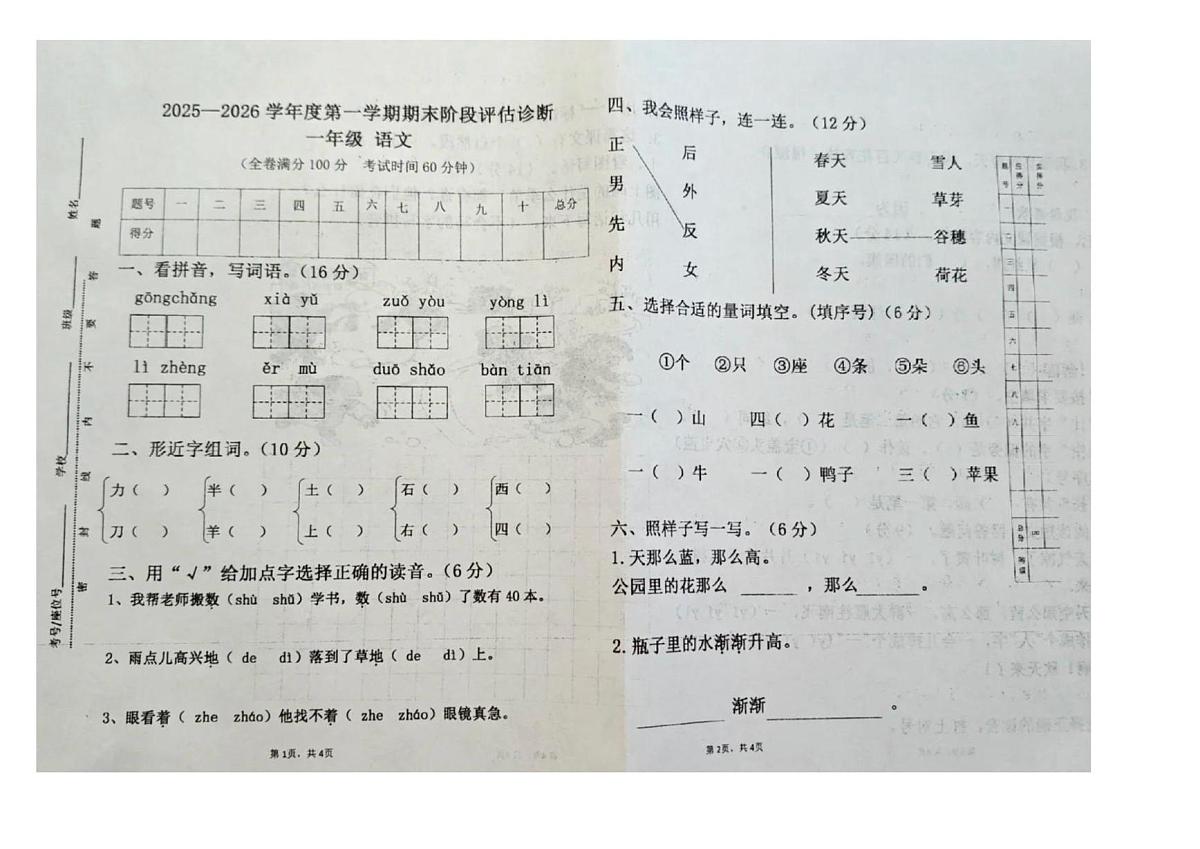 2025—2026 学年度第一学期期末阶段评估诊断
一年级 语文
(全卷满分 100 分 考试时间 60 分钟)
题号 一 二 三 四 五 六 七 八 九 十 总分
得分
一、看拼音，写词语。(16 分)
gōngchǎng xià yǔ zuǒ yòu yòng lì
lì zhèng ěr mù duō shǎo bàn tiān
二、形近字组词。(10 分)
力( ) 半( ) 土( ) 石( ) 西( )
刀( ) 羊( ) 上( ) 右( ) 四( )
三、用“√”给加点字选择正确的读音。(6 分)
1、我帮老师搬数(shù shǔ)学书，数(shù shǔ)了数有 40 本。
2、雨点儿高兴地( de dì)落到了草地( de dì)上。
3、眼看着( zhe zháo)他找不着( zhe zháo)眼镜真急。
第 1页，共 4页
姓名
班级
学校
考号/座位号
密 封 线 内 不 要 答 题
四、我会照样子，连一连。(12 分)
正 后 春天 雪人
男 外 夏天 草芽
先 反 秋天 谷穗
内 女 冬天 荷花
五、选择合适的量词填空。(填序号)(6 分)
①个 ②只 ③座 ④条 ⑤朵 ⑥头
一( )山 四( )花 一( )鱼
一( )牛 一( )鸭子 三( )苹果
六、照样子写一写。(6 分)
1.天那么蓝，那么高。
公园里的花那么 ，那么 。
2.瓶子里的水渐渐升高。
渐渐 。
第 2页，共 4页